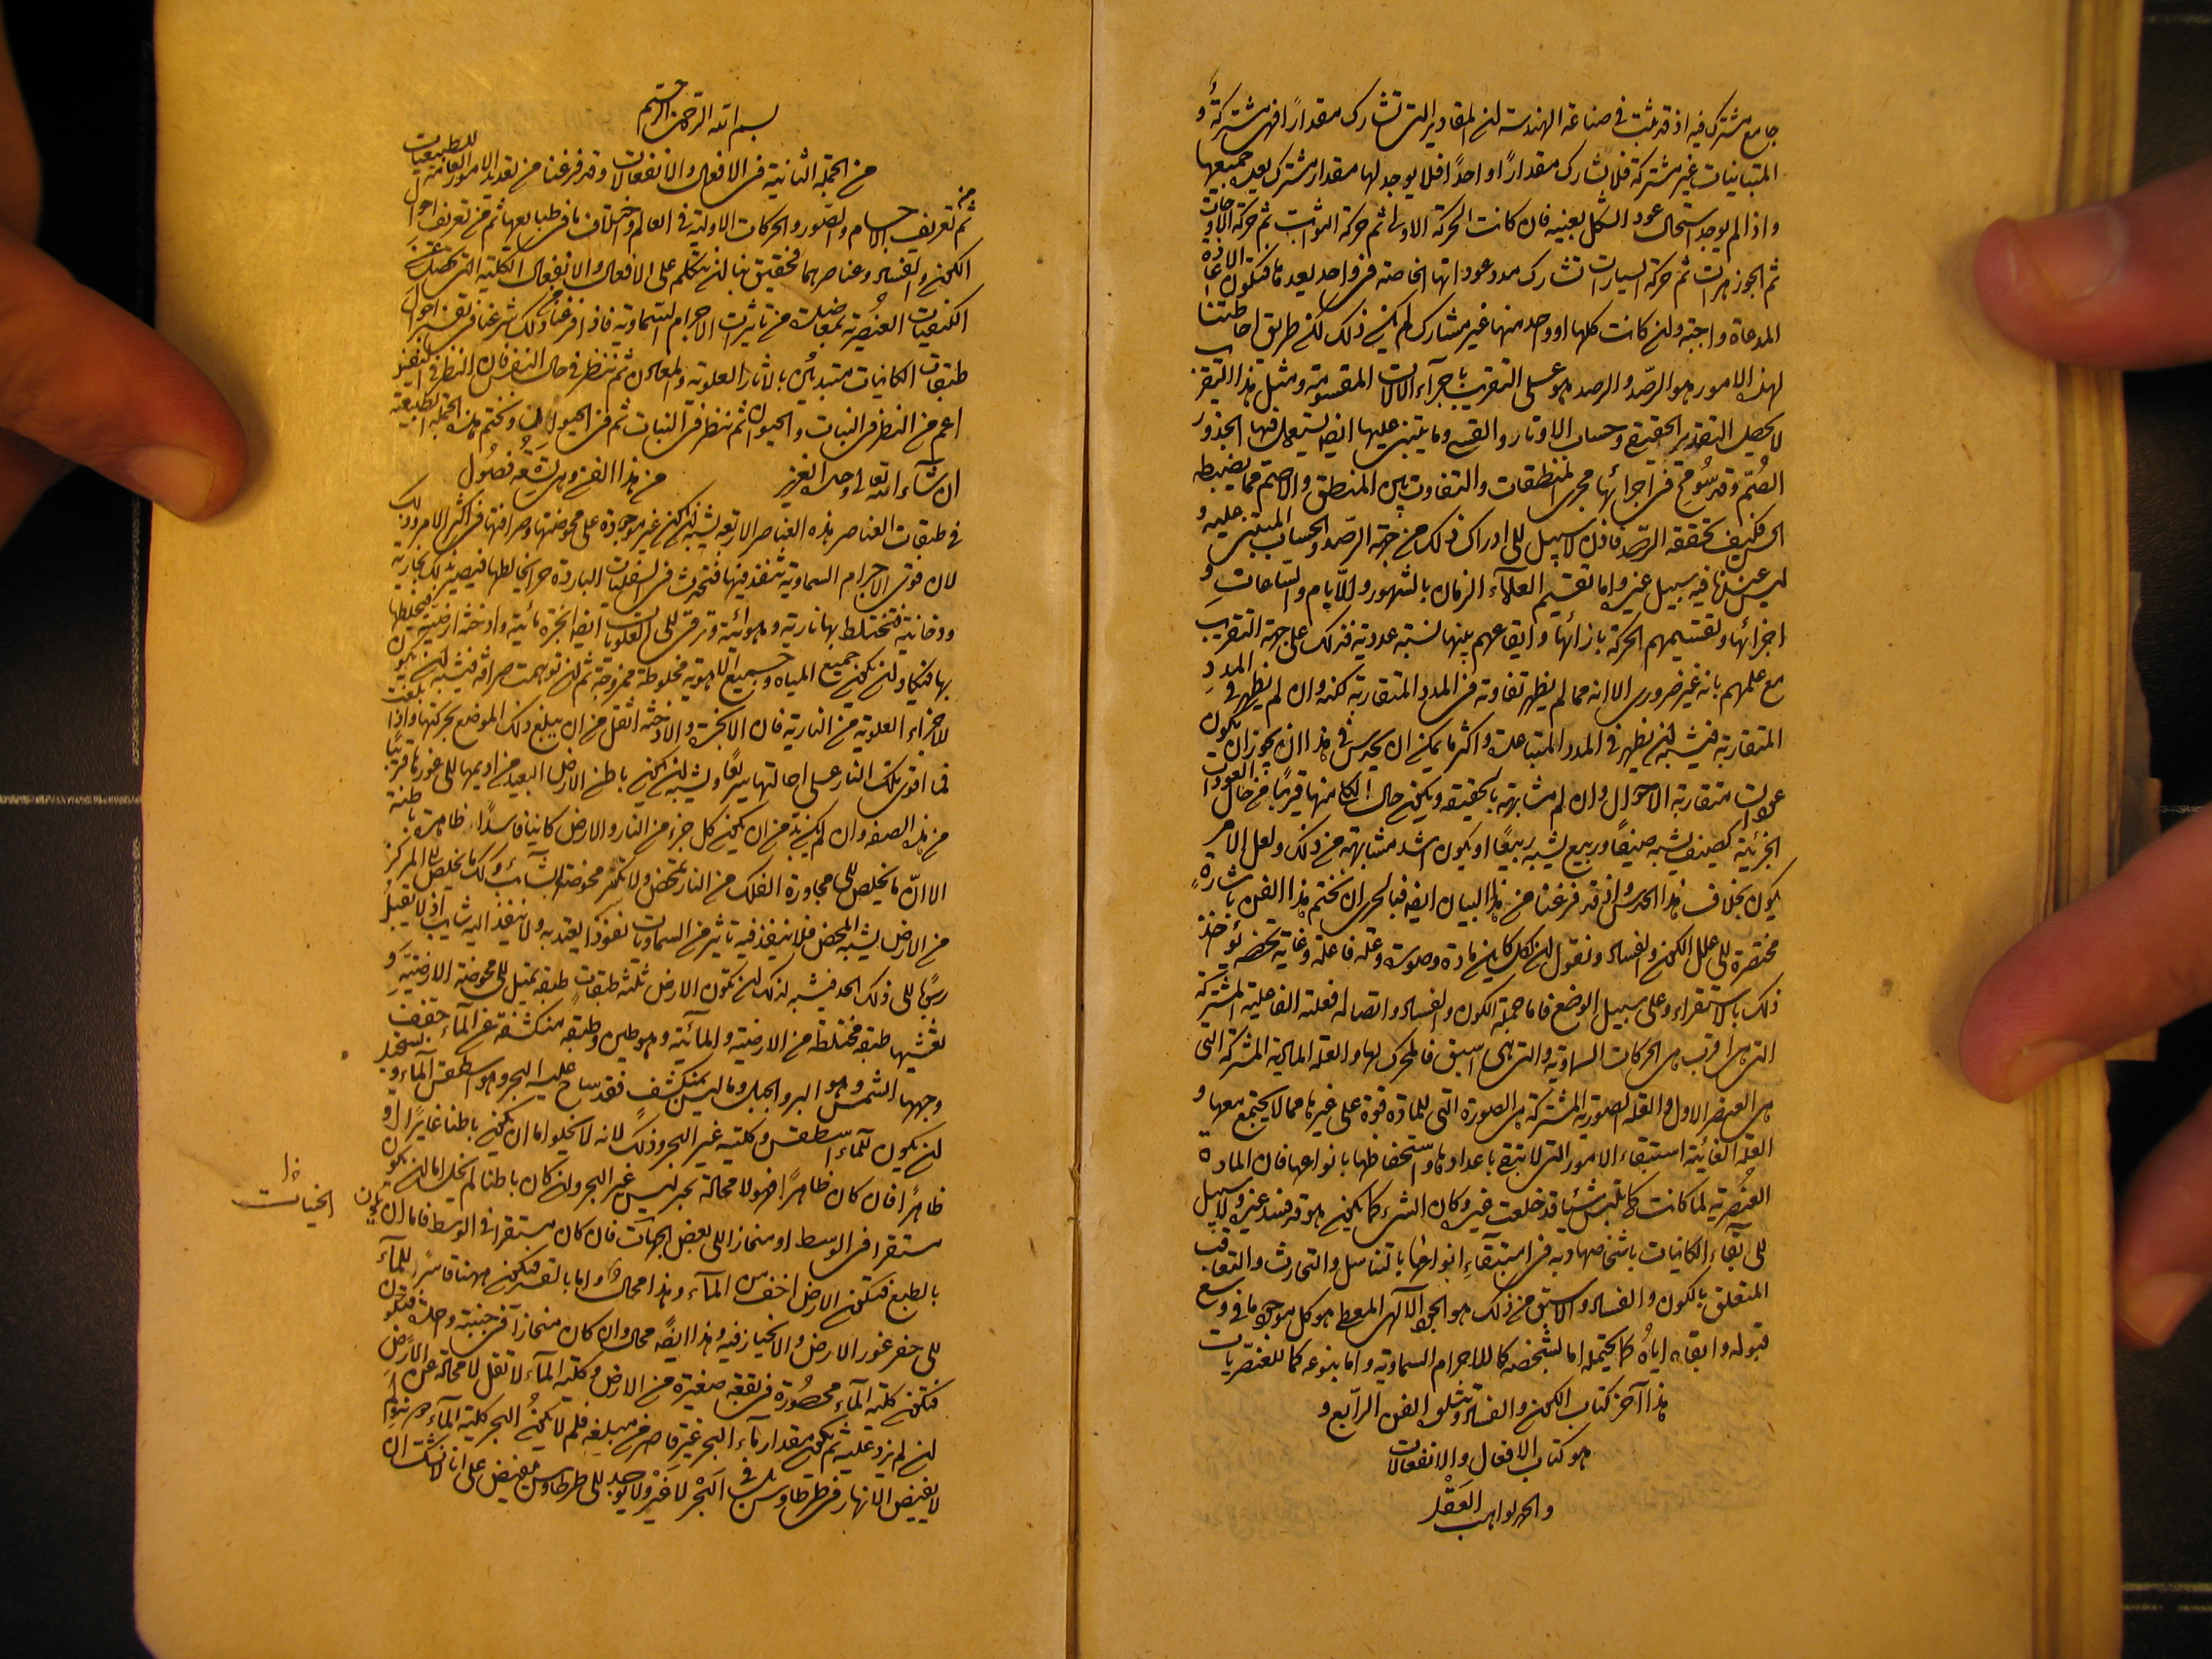 جامع مشترك فيه اذ قد ثبت فى صناعة الهندسة ان المقادير التى تشارك مقدارًا فهى مشتركة و
المتباينات غير مشتركة فلا تشارك مقدارًا واحدًا فلا يوجد لها مقدار مشترك يعد جميعها
واذا لم يوجد استحال عود الشكل بعينه فان كانت الحركة الاولى ثم حركة الثوابت ثم حركة الاوجات
ثم الجوزهرات ثم حركة السيارات تشارك مدد عوداتها الخاصة فى واحد يعدها فتكون الاعادة
المدعاة واجبة وان كانت كلها او واحد منها غير مشارك لم يكن ذلك لكن طريق احاطتنا
لهذه الامور هو الرصد والرصد هو على التقريب باجزاء الالات المقسومة ومثل هذا التقريب
لا يحصل التقدير الحقيقى وحساب الاوتار والقسى وما يبتنى عليها ايضا يستعمل فيها الجذور
الصم وقد سومح فى اجرائها مجرى المنطقات والتفاوت بين المنطق والاصم مما لا يضبطه
الحس فكيف يحققه الرصد فاذن لا سبيل الى ادراك ذلك من جهة الرصد والحساب المبتنى عليه و
ليس عندنا فيه سبيل غيره واما تقسيم العلماء الزمان بالشهور والايام والساعات و
اجزائها وتقسيمهم الحركة بازائها وايقاعهم بينها نسبة عددية فذلك على جهة التقريب
مع علمهم بانه غير ضرورى الا انه مما لم يظهر تفاوته فى المدد المتقاربة لكنه وان لم يظهر فى المدد
المتقاربة فيشبه ان يظهر فى المدد المتباعدة واكثر ما يمكن ان يحدس فى هذا ان يجوز ان يكون
عودات متقاربة الاحوال وان لم متشابهة بالحقيقة ويكون حال الكل منها قريبًا من حال العودات
الجزئية كصيف يشبه صيفًا وربيع يشبه ربيعًا او يكون اشد مشابهة من ذلك ولعل الامر
يكون بخلاف هذا الحدس واذ قد فرغنا من هذا البيان ايضا فبالحرى ان نختم هذا الفن باشارة
مختصرة الى علل الكون والفساد ونقول ان لكل كاين مادة وصورة وعلة فاعلة وغاية تخصه يؤخذ
ذلك بالاستقراء وعلى سبيل الوضع فاما جملة الكون والفساد واتصاله فعلته الفاعلية المشتركة
التى هى اقرب هى الحركات السماوية والتى هى اسبق فالمحرك لها والعلة المادية المشتركة التى
هى العنصر الاول والعلة الصورية المشتركة هى الصورة التى للمادة قوة على غيرها مما لا يجتمع معها و
العلة الغائية استبقاء الامور التى لا تبقى باعدادها واستحفاظها بانواعها فان المادة
العنصرية لما كانت كما تلبس شيئا قد خلعت غيره وكان الشىء كما يكون هو قد فسد غيره ولا سبيل
الى بقاء الكاينات باشخاصها دبر فى استبقاء انواعها بالتناسل والتحارث والتعاقب
المتعلق بالكون والفساد والاسبق من ذلك هو الجود الالهى المعطى هو كل موجود ما فى وسع
قبوله وابقاه اياه كما يحتمله اما بشخصه كما للاجرام السماوية واما بنوعه كما للعنصريات
هذا آخر كتاب الكون والفساد ويتلوه الفن الرابع و
هو كتاب الافعال والانفعالات
والحمد لواهب العقل
بسم الله الرحمن الرحيم
من الجملة الثانية فى الافعال والانفعالات وقد فرغنا من تعديد الامور العامة للطبيعيات
ثم من تعريف الاجسام والصور والحركات الاولية فى العالم واختلافها فى طبايعها ثم من تعريف احوال
الكون والفساد وعناصرهما فحقيق بنا ان نتكلم على الافعال والانفعال الكلية التى تحصل عن
الكيفيات العنصرية بمعاضدة من تاثيرات الاجرام السماوية فاذا فرغنا من ذلك شرعنا فى تفسير احوال
طبقات الكاينات مبتدئين بالاثار العلوية والمعادن ثم ننظر فى حال النفس فان النظر فى النفس
اعم من النظر فى النبات والحيوان ثم ننظر فى النبات ثم فى الحيوان ونختم هذه الجملة الطبيعية
ان شاء الله تعالى وحده العزيز من هذا الفن وهى تسعة فصول
فى طبقات العناصر هذه العناصر الاربعة يشبه ان تكون غير موجودة على محوضتها وصرافتها فى اكثر الامر وذلك
لان قوى الاجرام السماوية تنفذ فيها فتحدث فى السفليات الباردة حرا يخالطها فيصير بذلك بخارية
ودخانية فتختلط بها نارية وهوائية وترقى الى العلويات ايضا ابخرة مائية وادخنة ارضية فتخلطها
بها فتكاد ان تكون جميع المياه وجميع الاهوية مخلوطة ممزوجة ثم ان توهمت صرافة فيشبه ان يكون
للاجزاء العلوية من النارية فان الابخرة والادخنة اثقل من ان يبلغ ذلك الموضع بحركتها واذا بلغت
فما اقوى تلك النار على احالتها سريعًا ويشبه ان يكون باطن الارض البعيد من اديمها الى غورها قريبًا
من هذه الصفة وان لم يكن بد من ان يكون كل جزء من النار والارض كاينا فاسدًا ظاهره باطنه
الا ان ما يخلص الى مجاورة الفلك من النار يتمحض ولا يكسر محوضته الشائب وكذلك ما يخلص الى المركز
من الارض يشبه المحض فلا ينفذ فيه تاثير من السماويات نفوذا يعتد به ولا ينفذ اليه شايب اذ لا تقبل
رسوبا الى ذلك الحد فيشبه لذلك ان تكون الارض ثلثة طبقات طبقة تميل الى محوضة الارضية و
تغشيها طبقة مختلطة من الارضية والمائية وهو طين وطبقة منكشفة عن الماء جفف
وجهها الشمس وهو البر والجبل وما ليس بمنكشف فقد ساح عليه البحر وهو اسطقس الماء و
لن يكون للماء اسطقس وكلية غير البحر وذلك لانه لا يخلو اما ان يكون باطنا غايرًا او
ظاهرًا فان كان ظاهرًا فهو لا محالة بحر ليس غير البحر وان كان باطنا لم يخل اما ان يكون
مستقرا فى الوسط او منحازا الى بعض الجهات فان كان مستقرا فى الوسط فاما ان يكون
بالطبع فتكون الارض اخف من الماء وهذا محال واما بالقسر فيكون ههنا قاسر للماء
الى حفر غور الارض والانحياز فيه وهذا ايضًا محال وان كان منحازا فى جنبة واحدة فتكون
فتكون كلية الماء محصورة فى بقعة صغيرة من الارض وكلية الماء لا تقل لا محالة عن الارض
ان لم يزد عليه ثم يكون مقدار ماء البحر غير قاصر من مبلغه فلم لا يكون البحر كلية الماء
لا يفيض الانهار فى طرطاوس بل فى البحر لا غير ولا يوجد الى طرطاوس مفيض على انا لا نشك ان
الخيات